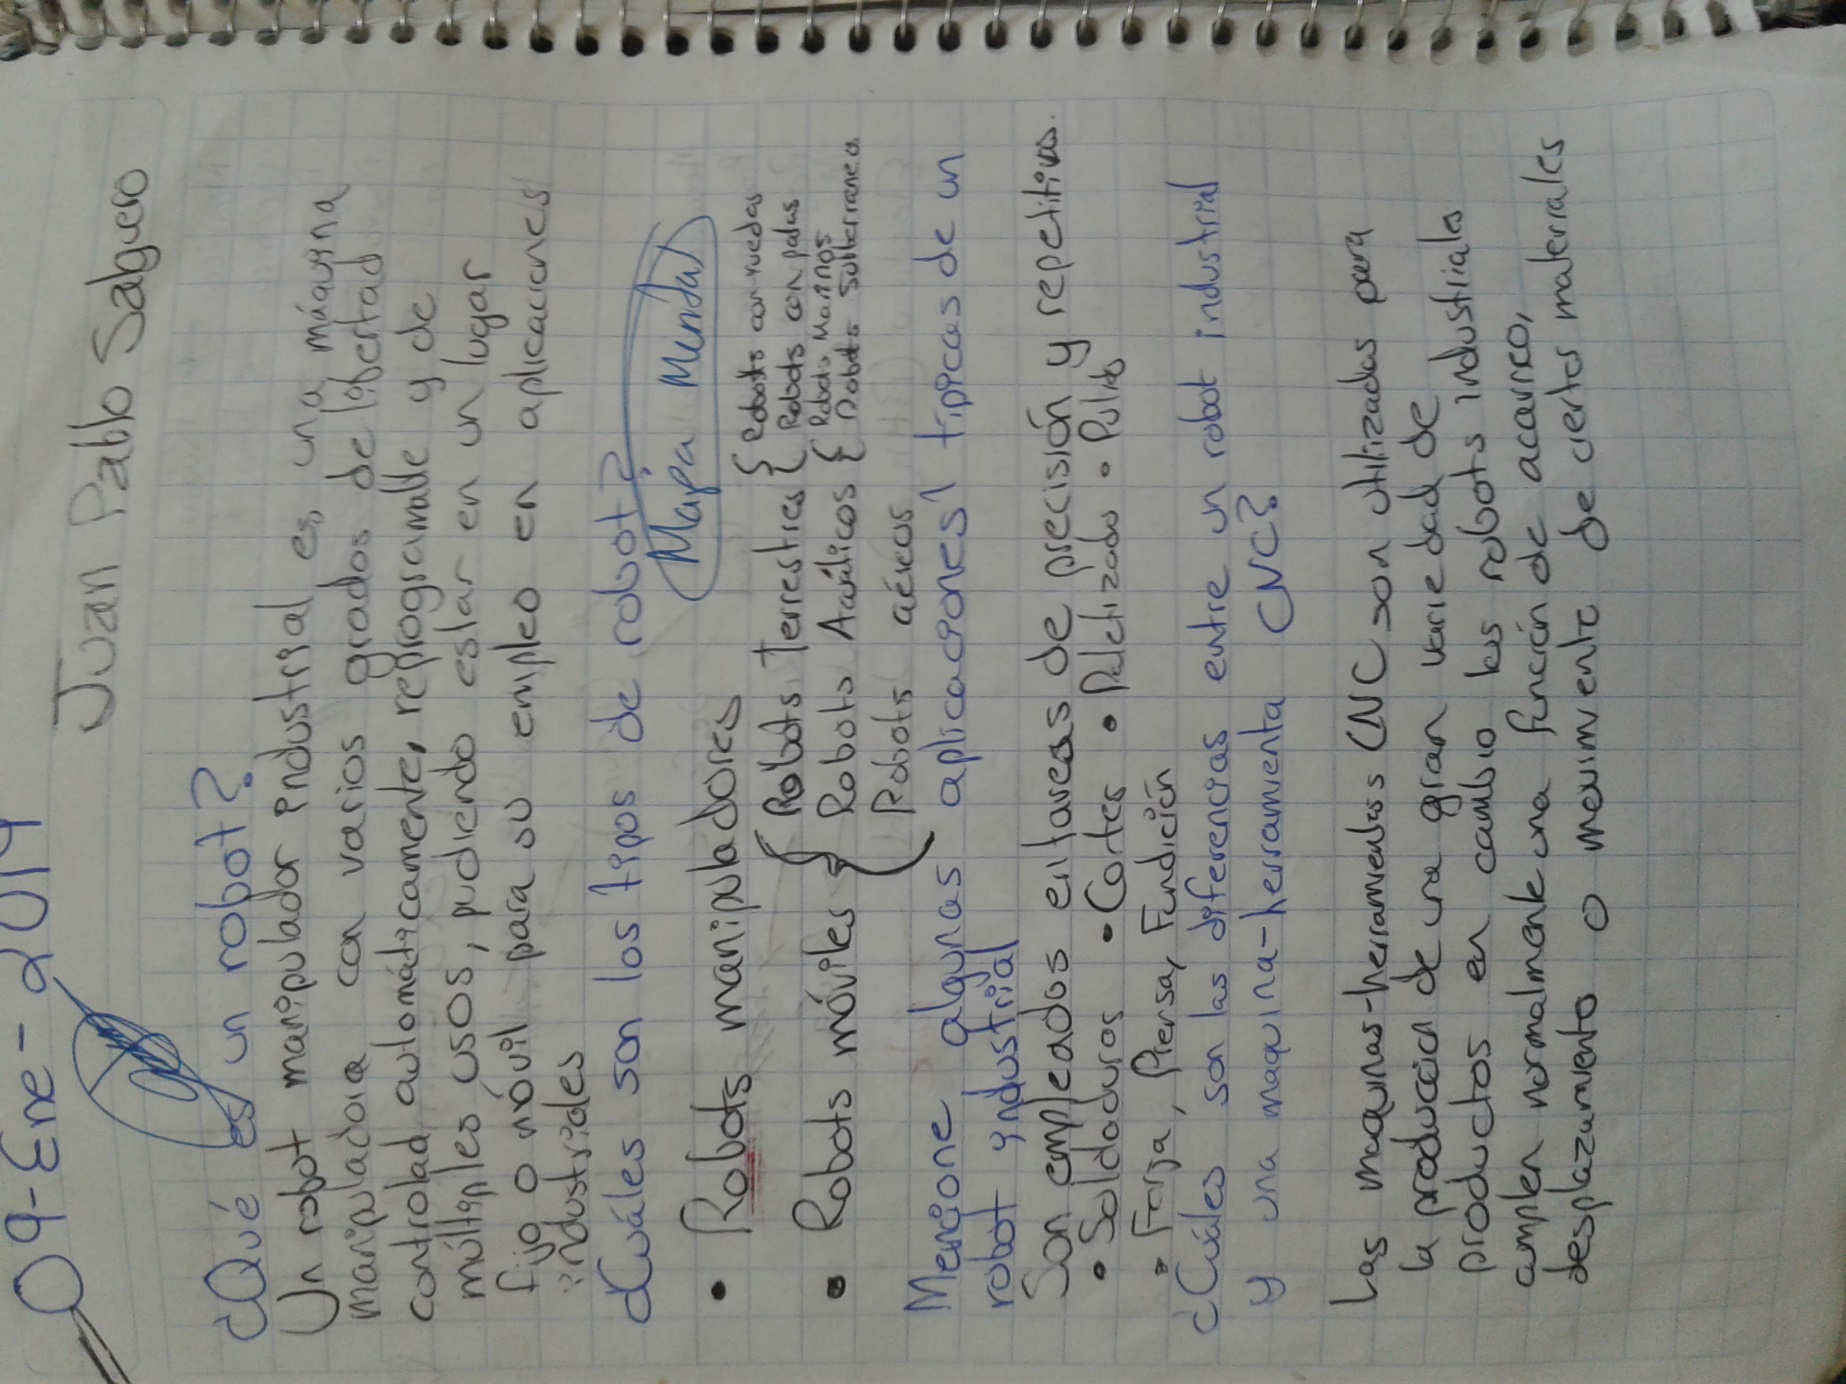 09-Ene-2014
Juan Pablo Salguero
¿Qué es un robot?
Un robot manipulador industrial es una máquina
manipuladora con varios grados de libertad
controlad automáticamente, reprogramable y de
múltiples usos, pudiendo estar en un lugar
fijo o móvil para su empleo en aplicaciones
industriales
¿Cuáles son los tipos de robot?
Mapa Mental
• Robots manipuladores
• Robots móviles
Robots Terrestres
Robots con ruedas
Robots con patas
Robots Acuáticos
Robots Marinos
Robots Subterranea
Robots aéreos
Mencione algunas aplicaciones típicas de un
robot industrial
Son empleados en tareas de precisión y repetitivas.
• Soldaduras • Cortes • Paletizado • Pulido
• Forja, Prensa, Fundición
¿Cuáles son las diferencias entre un robot industrial
y una maquina-herramienta CNC?
Las maquinas-herramientas CNC son utilizadas para
la producción de una gran variedad de
productos en cambio los robots industriales
cumplen normalmente una función de acarreo,
desplazamiento o movimiento de ciertos materiales